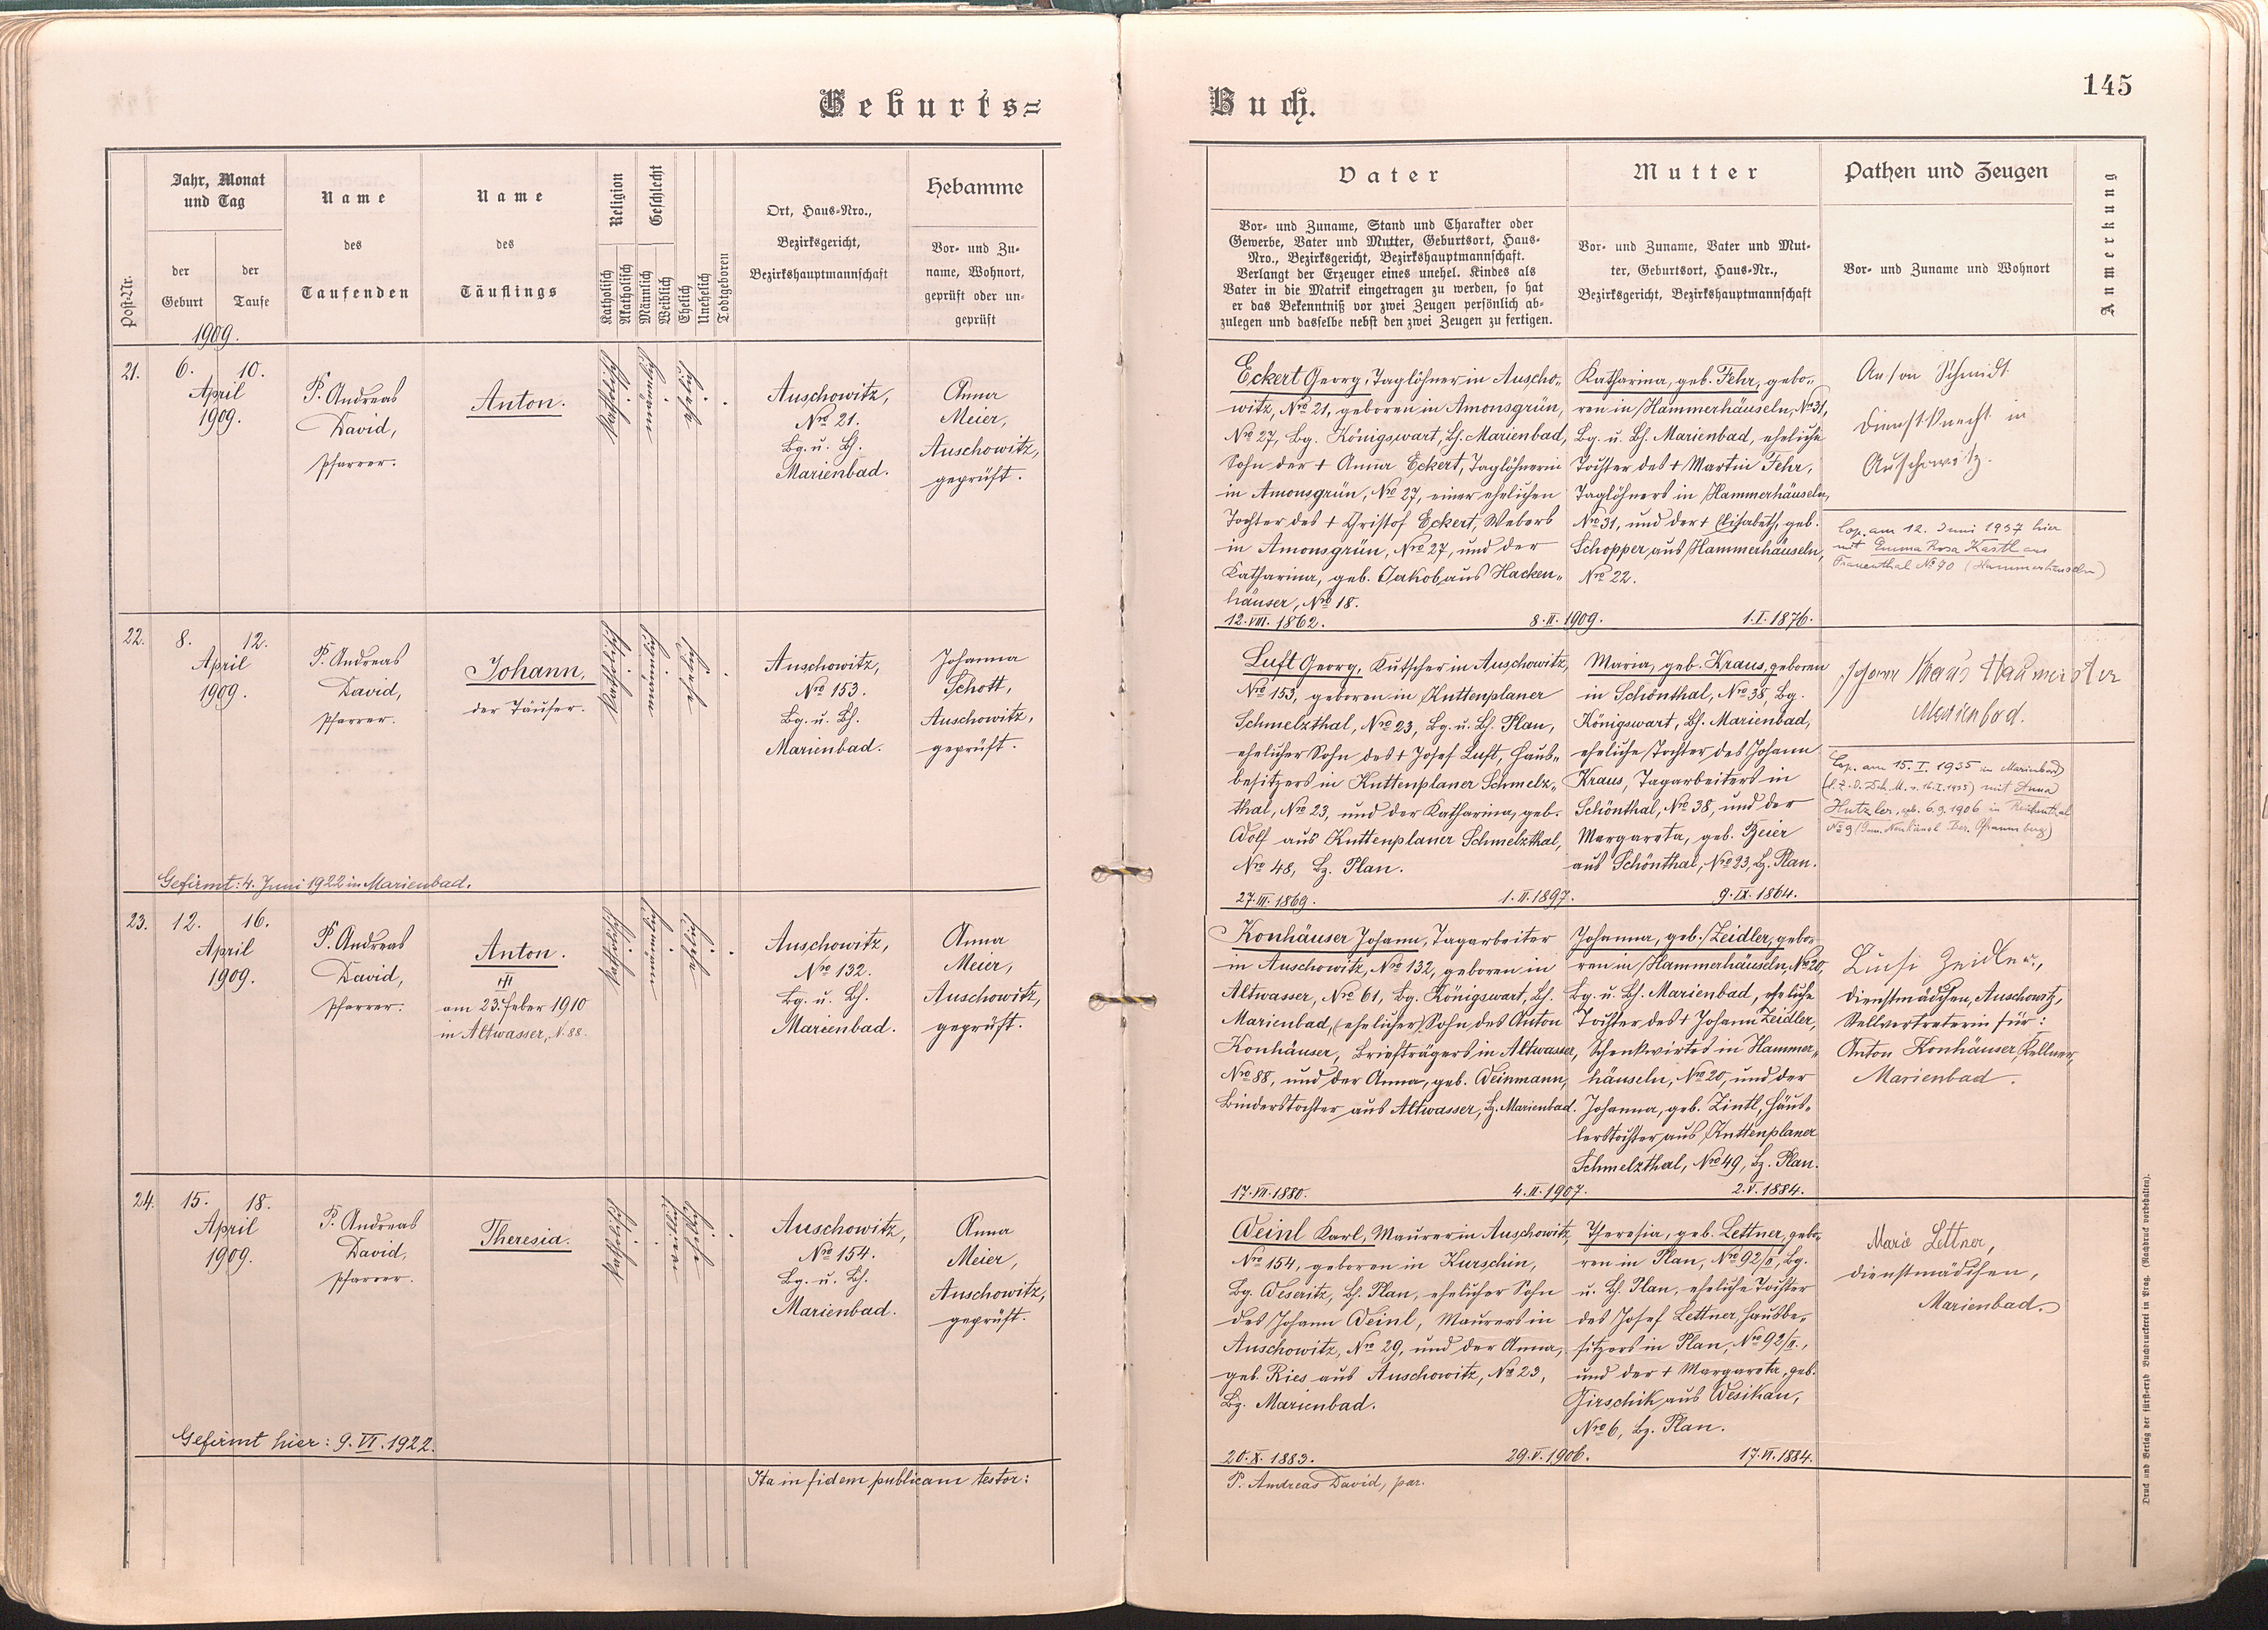 Geburts=
Buch.
145
Post-Nr.
Jahr, Monat
und Tag
der
Geburt
der
Taufe
Name
des
Taufenden
Name
des
Täuflings
Religion
Katholisch
Akatholisch
Geschlecht
Männlich
Weiblich
Ehelich
Unehelich
Todtgeboren
Ort, Haus-Nro.,
Bezirksgericht,
Bezirkshauptmannschaft
Hebamme
Vor- und Zu-
name, Wohnort,
geprüft oder un-
geprüft
Vater
Vor- und Zuname, Stand und Charakter oder
Gewerbe, Vater und Mutter, Geburtsort, Haus-
Nro., Bezirksgericht, Bezirkshauptmannschaft.
Verlangt der Erzeuger eines unehel. Kindes als
Vater in die Matrik eingetragen zu werden, so hat
er das Bekenntniß vor zwei Zeugen persönlich ab-
zulegen und dasselbe nebst den zwei Zeugen zu fertigen.
Mutter
Vor- und Zuname, Vater und Mut-
ter, Geburtsort, Haus-Nr.,
Bezirksgericht, Bezirkshauptmannschaft
Pathen und Zeugen
Vor- und Zuname und Wohnort
Anmerkung
1909.
21.
6. 10.
April
1909.
P. Andreas
David,
Pfarrer.
Anton.
katholisch
männlich
ehelich
Auschowitz,
Nro 21.
Bg. u. Bh.
Marienbad.
Anna
Meier,
Auschowitz,
geprüft.
Eckert Georg, Taglöhner in Auscho-
witz, Nro 21, geboren in Amonsgrün,
Nro 27, Bg. Königswart, Bh. Marienbad,
Sohn der + Anna Eckert, Taglöhnerin
in Amonsgrün, Nro 27, einer ehelichen
Tochter des + Christof Eckert, Webers
in Amonsgrün, Nro 27, und der
Katharina, geb. Jakob aus Hacken-
häuser, Nro 18.
12. VIII. 1862. 8. II. 1909. 1. I. 1876.
Katharina, geb. Fehr, gebo-
ren in Hammerhäuseln, Nro 31,
Bg. u. Bh. Marienbad, eheliche
Tochter des + Martin Fehr,
Taglöhners in Hammerhäuseln,
Nro 31, und der + Elisabeth, geb.
Schopper aus Hammerhäuseln,
Nro 22.
Anton Schmidt
Dienstknecht in
Auschowitz.
Cop. am 12. Juni 1937 hier
mit Emma Rosa Kastl aus
Frauenthal No 70 (Hammerhäuseln)
22.
8. 12.
April
1909.
P. Andreas
David,
Pfarrer.
Johann,
der Täufer.
katholisch
männlich
ehelich
Auschowitz,
Nro 153.
Bg. u. Bh.
Marienbad.
Johanna
Schott,
Auschowitz,
geprüft.
Gefirmt: 4. Juni 1922 in Marienbad.
Luft Georg, Kutscher in Auschowitz,
Nro 153, geboren in Kuttenplaner
Schmelzthal, Nro 23, Bg. u. Bh. Plan,
ehelicher Sohn des + Josef Luft, Haus-
besitzers in Kuttenplaner Schmelz-
thal, Nro 23, und der Katharina, geb.
Wolf aus Kuttenplaner Schmelzthal,
Nro 48, Bz. Plan.
27. III. 1869. 1. II. 1897. 9. IX. 1864.
Maria, geb. Kraus, geboren
in Schönthal, Nro 38, Bg.
Königswart, Bh. Marienbad,
eheliche Tochter des Johann
Kraus, Tagarbeiters in
Schönthal, Nro 38, und der
Margareta, geb. Beier
aus Schönthal, Nro 23, Bz. Plan.
Johann Kraus
Marienbad.
Cop. am 15. I. 1935 in Marienbad
mit Anna
Hutzler, geb. 6.9.1906 in
No 9
23.
12. 16.
April
1909.
P. Andreas
David,
Pfarrer.
Anton.
am 23. Feber 1910
in Altwasser, N. 88.
katholisch
männlich
ehelich
Auschowitz,
Nro 132.
Bg. u. Bh.
Marienbad.
Anna
Meier,
Auschowitz,
geprüft.
Konhäuser Johann, Tagarbeiter
in Auschowitz, Nro 132, geboren in
Altwasser, Nro 61, Bg. Königswart, Bh.
Marienbad, (ehelicher) Sohn des Anton
Konhäuser, Briefträgers in Altwasser,
Nro 88, und der Anna, geb. Weinmann,
Binderstochter aus Altwasser, Bz. Marienbad.
17. VII. 1880. 4. II. 1907. 2. V. 1884.
Johanna, geb. Zeidler, gebo-
ren in Hammerhäuseln, Nro 20,
Bg. u. Bh. Marienbad, eheliche
Tochter des + Johann Zeidler,
Schenkwirtes in Hammer-
häuseln, Nro 20, und der
Johanna, geb. Zintl, Häus-
lerstochter aus Kuttenplaner
Schmelzthal, Nro 49, Bz. Plan.
Luisi Zeidler,
Dienstmädchen, Auschowitz,
Stellvertreterin für:
Anton Konhäuser, Kellner,
Marienbad.
24.
15. 18.
April
1909.
P. Andreas
David,
Pfarrer.
Theresia.
katholisch
weiblich
ehelich
Auschowitz,
Nro 154.
Bg. u. Bh.
Marienbad.
Anna
Meier,
Auschowitz,
geprüft.
Gefirmt hier: 9. VI. 1922.
Weinl Karl, Maurer in Auschowitz,
Nro 154, geboren in Kurschin,
Bg. Weseritz, Bh. Plan, ehelicher Sohn
des Johann Weinl, Maurers in
Auschowitz, Nro 29, und der Anna,
geb. Ries aus Auschowitz, Nro 23,
Bz. Marienbad.
20. X. 1883. 29. V. 1906. 17. VI. 1884.
Theresia, geb. Lettner, gebo-
ren in Plan, Nro 92/II, Bg.
u. Bh. Plan, eheliche Tochter
des Josef Lettner, Hausbe-
sitzers in Plan, Nro 92/II.,
und der + Margareta, geb.
Girschik aus Wesikau,
Nro 6, Bz. Plan.
Marie Lettner,
Dienstmädchen,
Marienbad.
Ita in fidem publicam testor:
P. Andreas David, par.
Druck und Verlag der fürst-erzb Buchdruckerei in Prag. (Nachdruck vorbehalten).